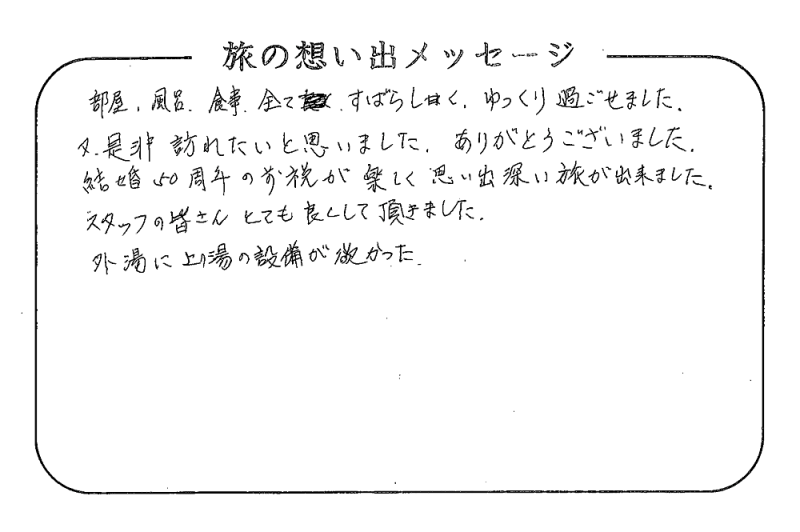 旅の想い出メッセージ
部屋、風呂、食事、全て、すばらしく、ゆっくり過ごせました。
又、是非訪れたいと思いました。ありがとうございました。
結婚50周年のお祝が楽しく思い出深い旅が出来ました。
スタッフの皆さんとても良くして頂きました。
外湯に上り湯の設備が欲かった。